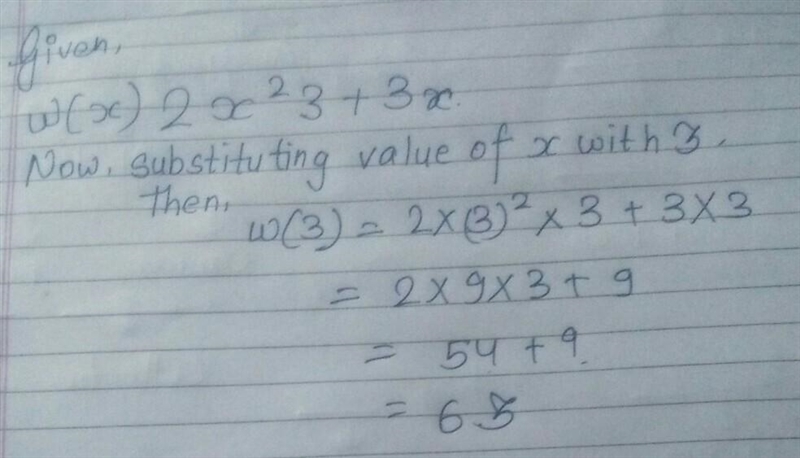 Given,
w(x) 2x²3 + 3x.
Now, substituting value of x with 3.
Then,
w(3) = 2×(3)² × 3 + 3×3
= 2×9×3 + 9
= 54 + 9.
= 63